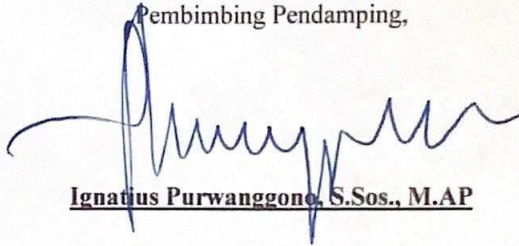 Pembimbing Pendamping,
Ignatius Purwanggono, S.Sos., M.AP